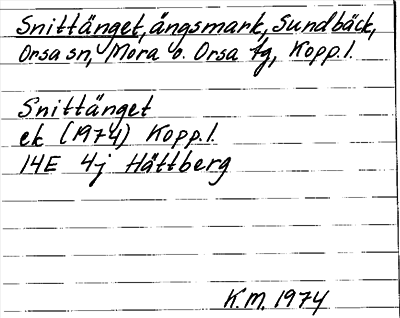 Snittänget, ängsmark, Sundbäck,
Orsa sn, Mora o. Orsa tg, Kopp. l.
Snittänget
ek (1974) Kopp. l.
14E 4j Hättberg
K.M. 1974